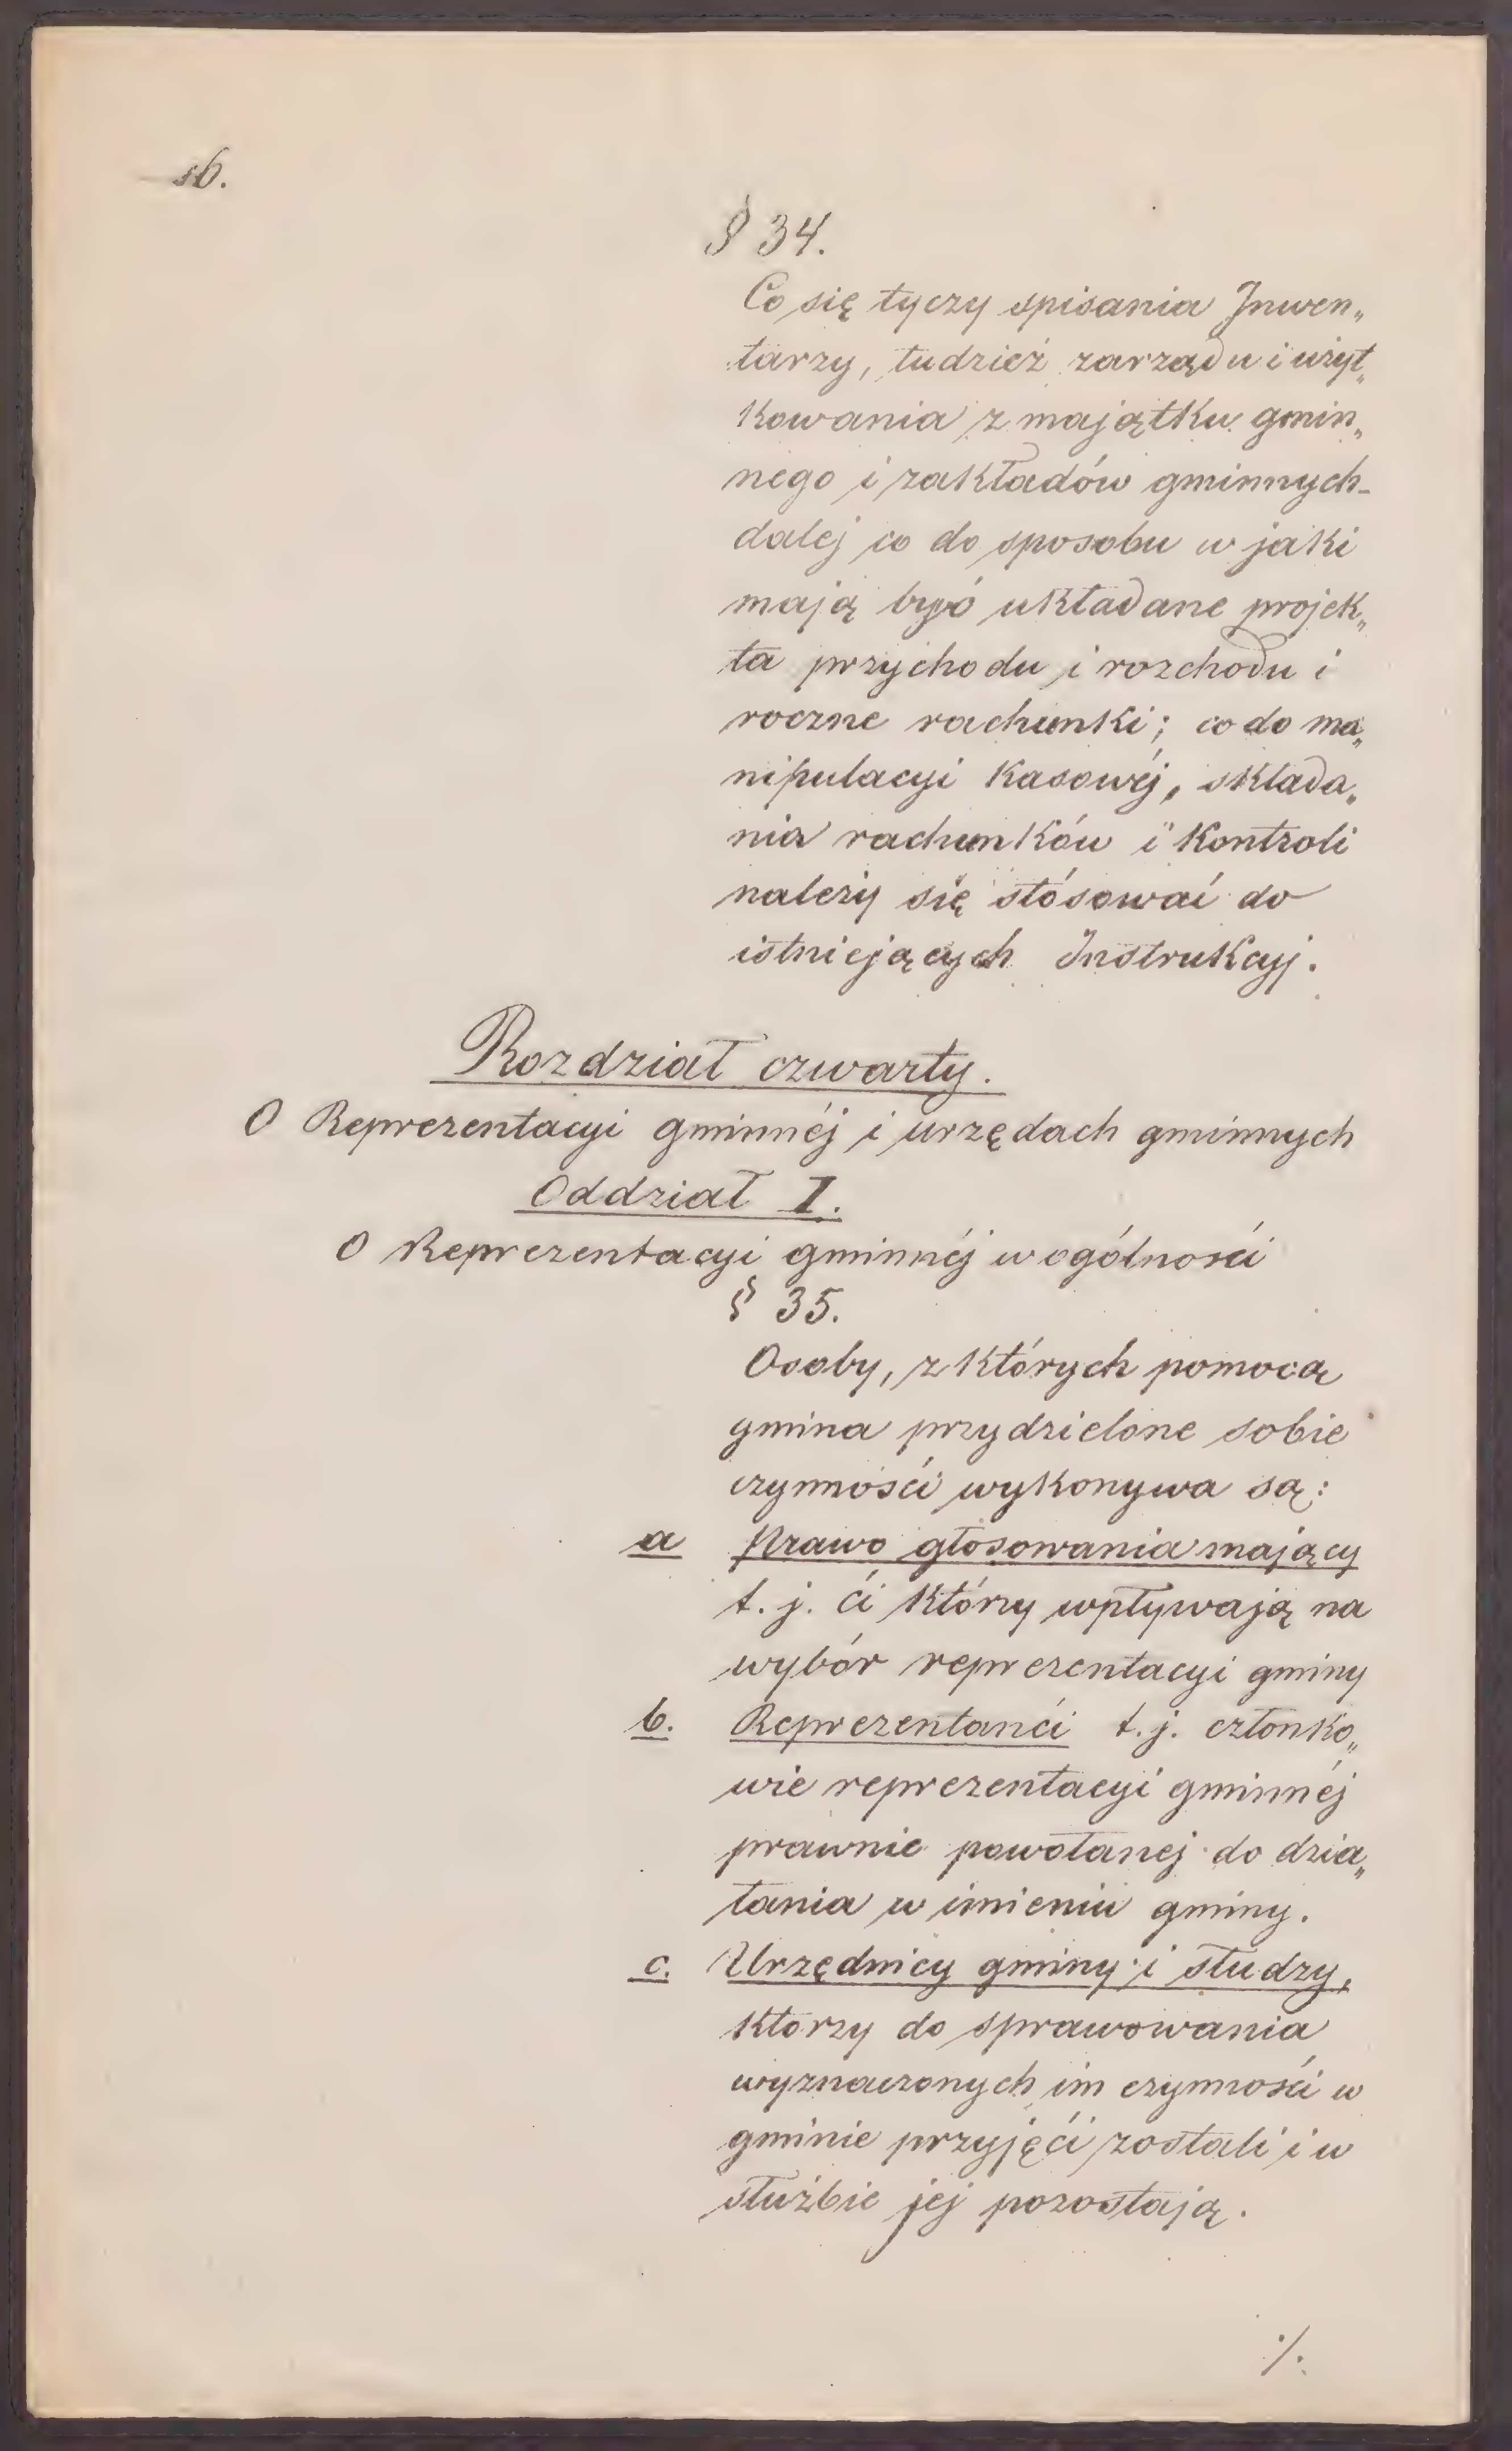 16.
§ 34.
Co się tyczy spisania Inwen„
tarzy, tudzież zarządu i użyt„
kowania z majątku gmin„
nego i zakładów gminnych -
dalej co do sposobu w jaki
mają być układane projek„
ta przychodu i rozchodu i
roczne rachunki; co do ma„
nipulacyi kasowéj, składa„
nia rachunków i kontroli
należy się stósować do
istniejących Instrukcyj.
Rozdział czwarty.
O Reprezentacyi gminnéj i urzędach gminnych
Oddział I.
O Reprezentacyi gminnéj w ogólności
§ 35.
Osoby, z których pomocą
gmina przydzielone sobie
czynności wykonywa są:
a prawo głosowania mający
t. j. ci którzy wpływają na
wybór reprezentacyi gminy
b. Reprezentanci t. j. członko„
wie reprezentacyi gminnéj
prawnie powołanej do dzia„
łania w imieniu gminy.
c. Urzędnicy gminy i słudzy,
którzy do sprawowania
wyznaczonych im czynności w
gminie przyjęci zostali i w
służbie jej pozostają.
./.